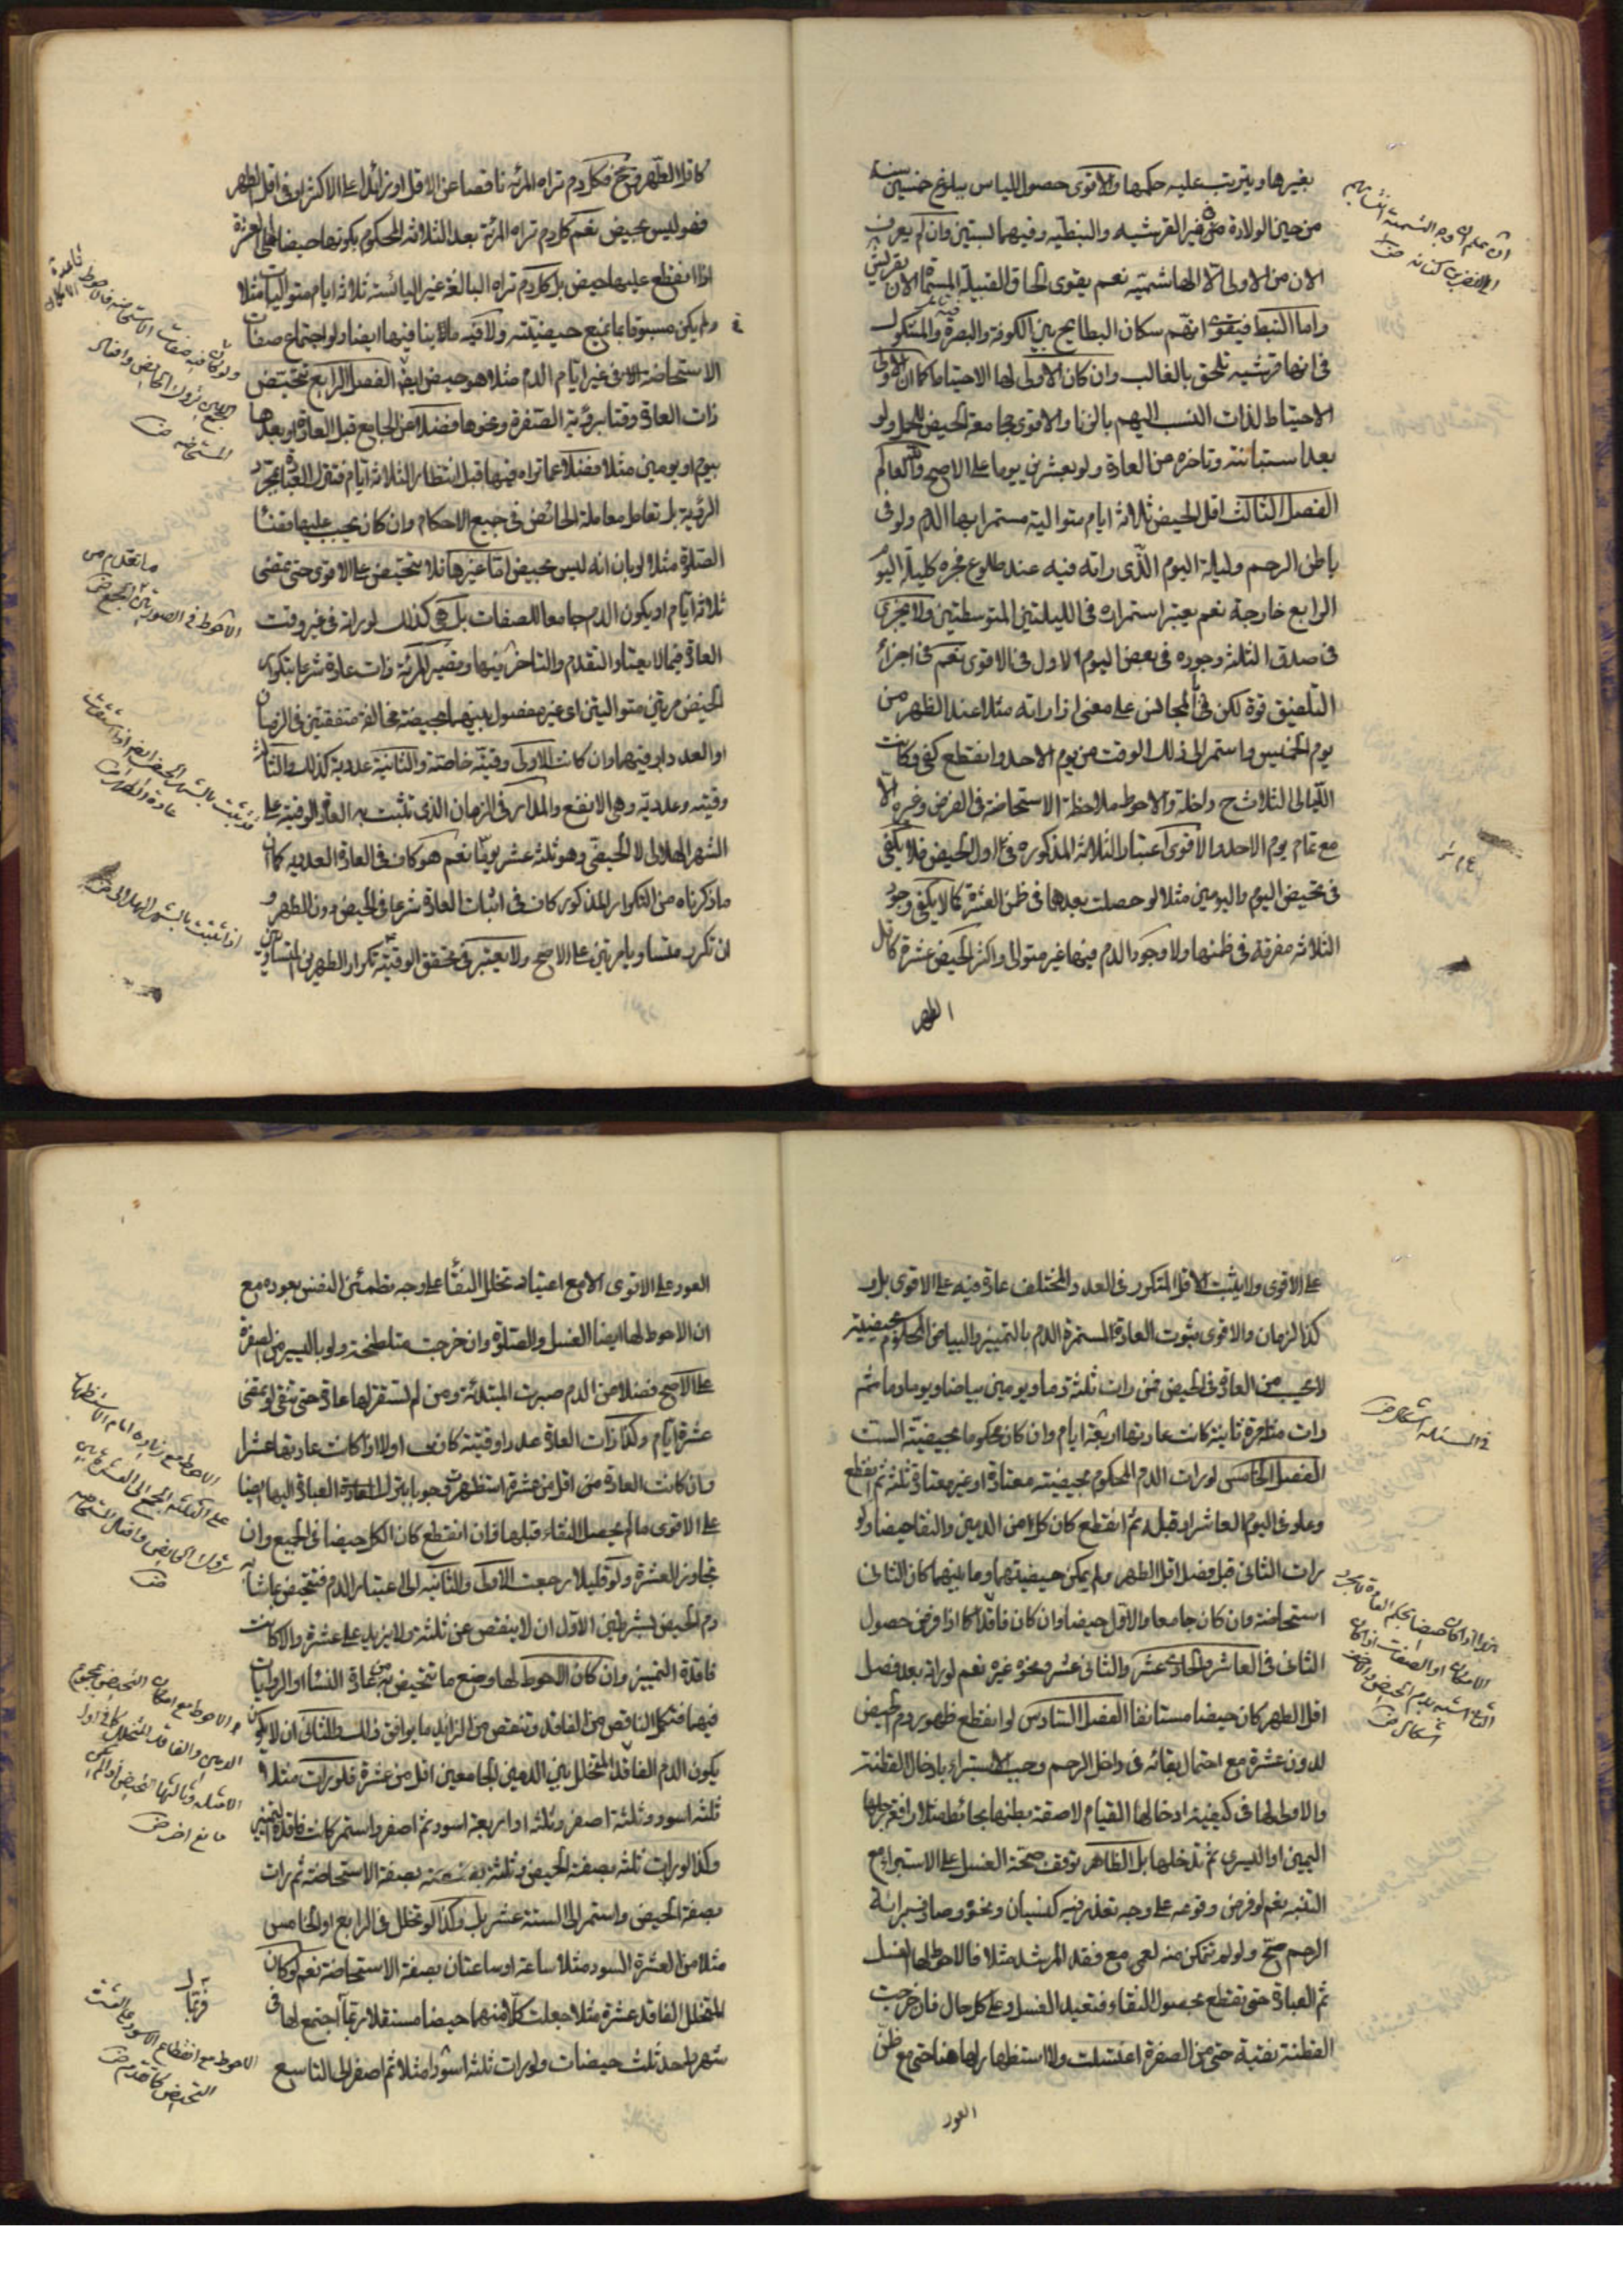 بغيرها ويترتب عليه حكمها والاقوى حصول الياس ببلوغ خمسين سنة
من حين الولادة في غير القرشيه والنبطيه وفيهما لستين وان لم يعرف
الان من الاولى الا الهاشميه نعم يقوى لحاق القبيلة المسماة الان بقريش
واما النبط فيقوى انهم سكان البطايح بين الكوفة والبصرة والمشكوك
في انها قرشيه تلحق بالغالب وان كان الاولى لها الاحتياط كما ان الاولى
الاحتياط لذات النسب اليهم بالزنا والاقوى مجامعة الحيض للحمل ولو
بعد استبانته وتاخره من العادة ولو بعشرين يوما على الاصح والله العالم
الفصل الثالث اقل الحيض ثلاثه ايام متواليه مستمرا بها الدم ولو في
باطن الرحم وليلة اليوم الذى راته فيه عند طلوع فجره كليلة اليوم
الرابع خارجة نعم يعتبر استمراره في الليلتين المتوسطتين ولا يجزى
في صدق الثلثه وجوده في بعض اليوم الاول في الاقوى نعم في اجزاء
التلفيق قوة لكن في المجالس على معنى اذا راته مثلا عند الظهر من
يوم الخميس واستمر الى ذلك الوقت من يوم الاحد وانقطع كفى وكانت
الليالى الثلاث ح داخلة والاحوط ملاحظة الاستحاضة في الفرض وغيره الا
مع تمام يوم الاحد والاقوى اعتبار الثلاثه المذكوره في اول الحيض فلا يكفى
في تحيض اليوم واليومين مثلا لو حصلت بعدها في ظن العشرة كما لا يكفى وجود
الثلاثه مفرقة في ظنها ولا وجود الدم فيها غير متوالى واكثر الحيض عشرة كاقل
الطهر
كاقل الطهر فكل دم تراه المرئه ناقصا عن الاقل او زائدا على الاكثر او في اقل الطهر
فهو ليس بحيض نعم كل دم تراه المرئة بعد الثلاثه المحكوم بكونها حيضا الى العشرة
اذا انقطع عليها حيض بل كل دم تراه البالغة غير اليائسة ثلاثه ايام متواليات مثلا
ولم يكن مسبوقا بما يمنع حيضيته ولا فيه ما ينافيها ايضا ولو اجتماع صفات
الاستحاضه في غير ايام الدم مثلا هو حيض ايضا الفصل الرابع تتحيض
ذات العادة وقتا برؤية الصفرة ونحوها فضلا عن الجامع قبل العادة او بعدها
بيوم او يومين مثلا فضلا عما تراه فيها قبل انتظار الثلاثه ايام فتترك العبادة بمجرد
الرئية بل تعامل معاملة الحائض في جميع الاحكام وان كان يجب عليها قضاء
الصلوة مثلا لو بان انه ليس بحيض اما غيرها فلا تتحيض على الاقوى حتى تمضى
ثلاثه ايام او يكون الدم جامعا للصفات بل هي كذلك لو راته في غير وقت
العادة فيما لا يعتاد التقدم والتاخر فيها وتصير المرئة ذات عادة شرعا بتكرر
الحيض مرتين متواليتين اى غير مفصول بينهما بحيضة مخالفة متفقتين في الزمان
او العدد او فيهما وان كانت الاولى وقتيه خاصة والثانية عددية كذلك والثالث
وقتيه وعدديه وهى الانفع والمدار في الزمان الذى تثبت به العادة الوقتيه على
الشهر الهلالى لا الحيضى وهو ثلثه عشر يوما نعم هو كاف في العادة العدديه كما ان
ما ذكرناه من التكرار المذكور كاف في اثبات العادة شرعا في الحيض دون الطهر و
ان تكرر متساويا مرتين على الاصح ولا يعتبر في تحقق الوقتيه تكرار الطهرين المتساويين
ما تقدم من
الاحوط في الصورتين الجمع
اذا ثبتت بالشهر الهلالى
على الاقوى ولا يثبت الاقل المتكرر في العدد المختلف عادة فيه على الاقوى بل و
كذا الزمان والاقوى ثبوت العادة المستمرة الدم بالتمييز والبياض المحكوم بحيضيته
لا يحسب من العادة في الحيض فمن رات ثلثة دما ويومين بياضا ويوما دما ثم
رات متاخرة ثانية كانت عادتها اربعة ايام وان كان محكوما بحيضية الست
الفصل الخامس لو رات الدم المحكوم بحيضيته معتادة او غير معتادة ثلثه ثم انقطع
وعاد في اليوم العاشر او قبله ثم انقطع كان كل من الدمين والنقا حيضا ولو
رات الثانى قبل فصل اقل الطهر ولم يمكن حيضيتهما وما بينهما كان الثانى
استحاضة وان كان جامعا والاول حيضا وان كان فاقدا كما اذا فرض حصول
الثانى في العاشر والحادى عشر والثانى عشر ونحوه غيره نعم لو راته بعد فصل
اقل الطهر كان حيضا مستانفا الفصل السادس لو انقطع ظهور دم الحيض
لدون عشرة مع احتمال بقائه في داخل الرحم وجب الاستبراء بادخال القطنة
والاولى لها في كيفية ادخالها القيام لاصقة بطنها بحائط مثلا رافعة رجلها
اليمين او اليسرى ثم تدخلها بل الظاهر توقف صحة الغسل على الاستبراء مع
التنبه نعم لو فرض وقوعه على وجه تعذر فيه كنسيان ونحوه وصادف برائة
الرحم صح ولو لم تتمكن منه لعمى مع فقد المرشد مثلا فالاحوط لها الغسل
ثم العبادة حتى تقطع بحصول النقاء فتعيد الغسل وعلى كل حال فان خرجت
القطنة نقية حتى من الصفرة اغتسلت ولا استظهار لها هنا حتى مع ظن
العود
في المسئله اشكال
العود على الاقوى الا مع اعتياد تخلل النقاء على وجه تطمئن النفس بعوده مع
ان الاحوط لها ايضا الغسل والصلوة وان خرجت متلطخة ولو باليسير من الصفرة
على الاصح فضلا من الدم صبرت المبتدئة ومن لم تستقر لها عادة حتى تنقى او تمضى
عشرة ايام وكذا ذات العادة عددا وقتية كانت اولا اذا كانت عادتها عشرا
وان كانت العادة من اقل من عشرة استظهرت وجوبا بترك العبادة اليها ايضا
على الاقوى ما لم يحصل النقاء قبلها فان انقطع كان الكل حيضا في الجميع وان
تجاوز العشرة ولو قليلا رجعت الاولى والثانيه الى اعتبار الدم فتتحيض بما شابه
دم الحيض بشرطين الاول ان لا ينقص عن ثلثة ولا يزيد على عشرة والا كانت
فاقدة التمييز وان كان الاحوط لها وضع ما تتحيض به من عادة النساء او الروايات
فيها فتكمل الناقص من الفاقد وتنقص من الزايد ما يوافق ذلك الثانى ان لا يكون
يكون الدم الفاقد المتخلل بين الدمين الجامعين اقل من عشرة فلو رات مثلا
ثلثه اسود وثلثة اصفر وثلثه او اربعة اسود ثم اصفر واستمر كانت فاقدة التمييز
وكذا لو رات ثلثه بصفة الحيض وثلثة بصفة الاستحاضة ثم رات
بصفة الحيض واستمر الى الستة عشر بل وكذا لو تخلل في الرابع او الخامس
مثلا من العشرة السود مثلا ساعة او ساعتان بصفة الاستحاضة نعم لو كان
المتخلل الفاقد عشرة مثلا جعلت كلا منهما حيضا مستقلا ربما اجتمع لها في
شهر واحد ثلث حيضات ولو رات ثلثه اسود مثلا ثم اصفر الى التاسع